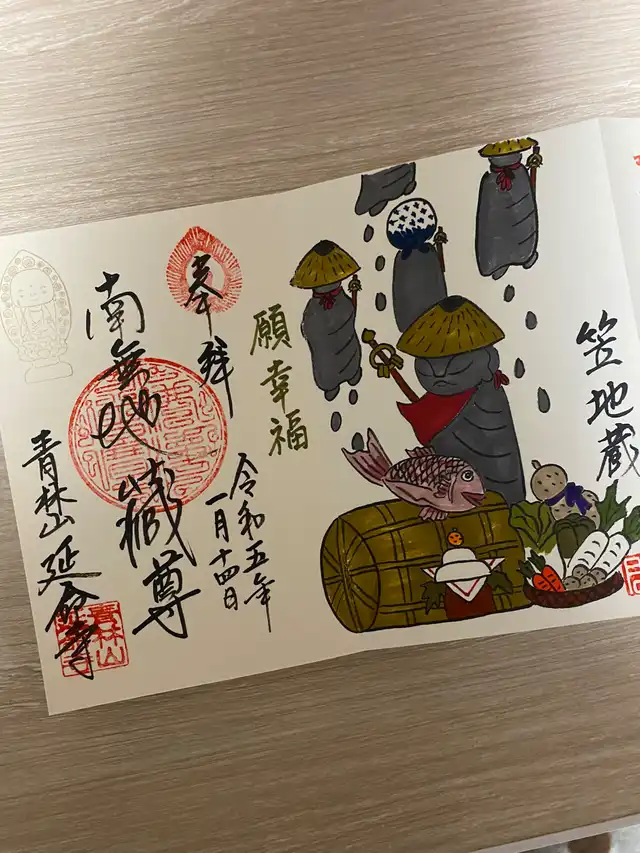 笠地蔵
願幸福
奉拝
令和五年
一月十四日
南無地蔵尊
青林山 延命寺
青林山